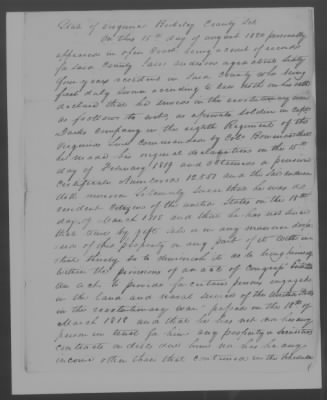 State of Virginia Berkeley County Sct
On this 15th day of August 1820 personally
appeared in open Court being a court of record
for said County Jacob Anderson aged about sixty
four years resident in said county who being
first duly sworn according to law doth on his oath
declare that he served in the revolutionary war
as follows to wit, as a private soldier in Capt
Darks company in the eighth Regiment of the
Virginia line commanded by Colo Bowman that
he made his original declaration in the 15th
day of February 1819 and obtained a pension
Certificate Numbered 12.551 and the said
doth moreover Solemnly swear that he was a
resident Citizen of the united States on the 18th
day of March 1818 and that he has not since
that time by gift sale or in any manner dispo
sed of his property or any part of it with in
tent thereby so to diminish it as to bring himself
within the provisions of an act of Congress Entitled
An act to provide for certain persons engaged
in the land and naval service of the United States
in the revolutionary war passed in the 18th of
March 1818 and that he has not nor has any
person in trust for him any property or Securities
contracts or debts due him nor has he any
income other than that contained in the